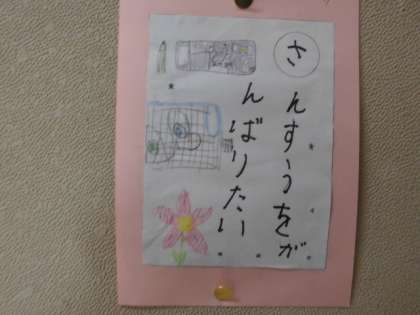 さ
んすうをが
んばりたい